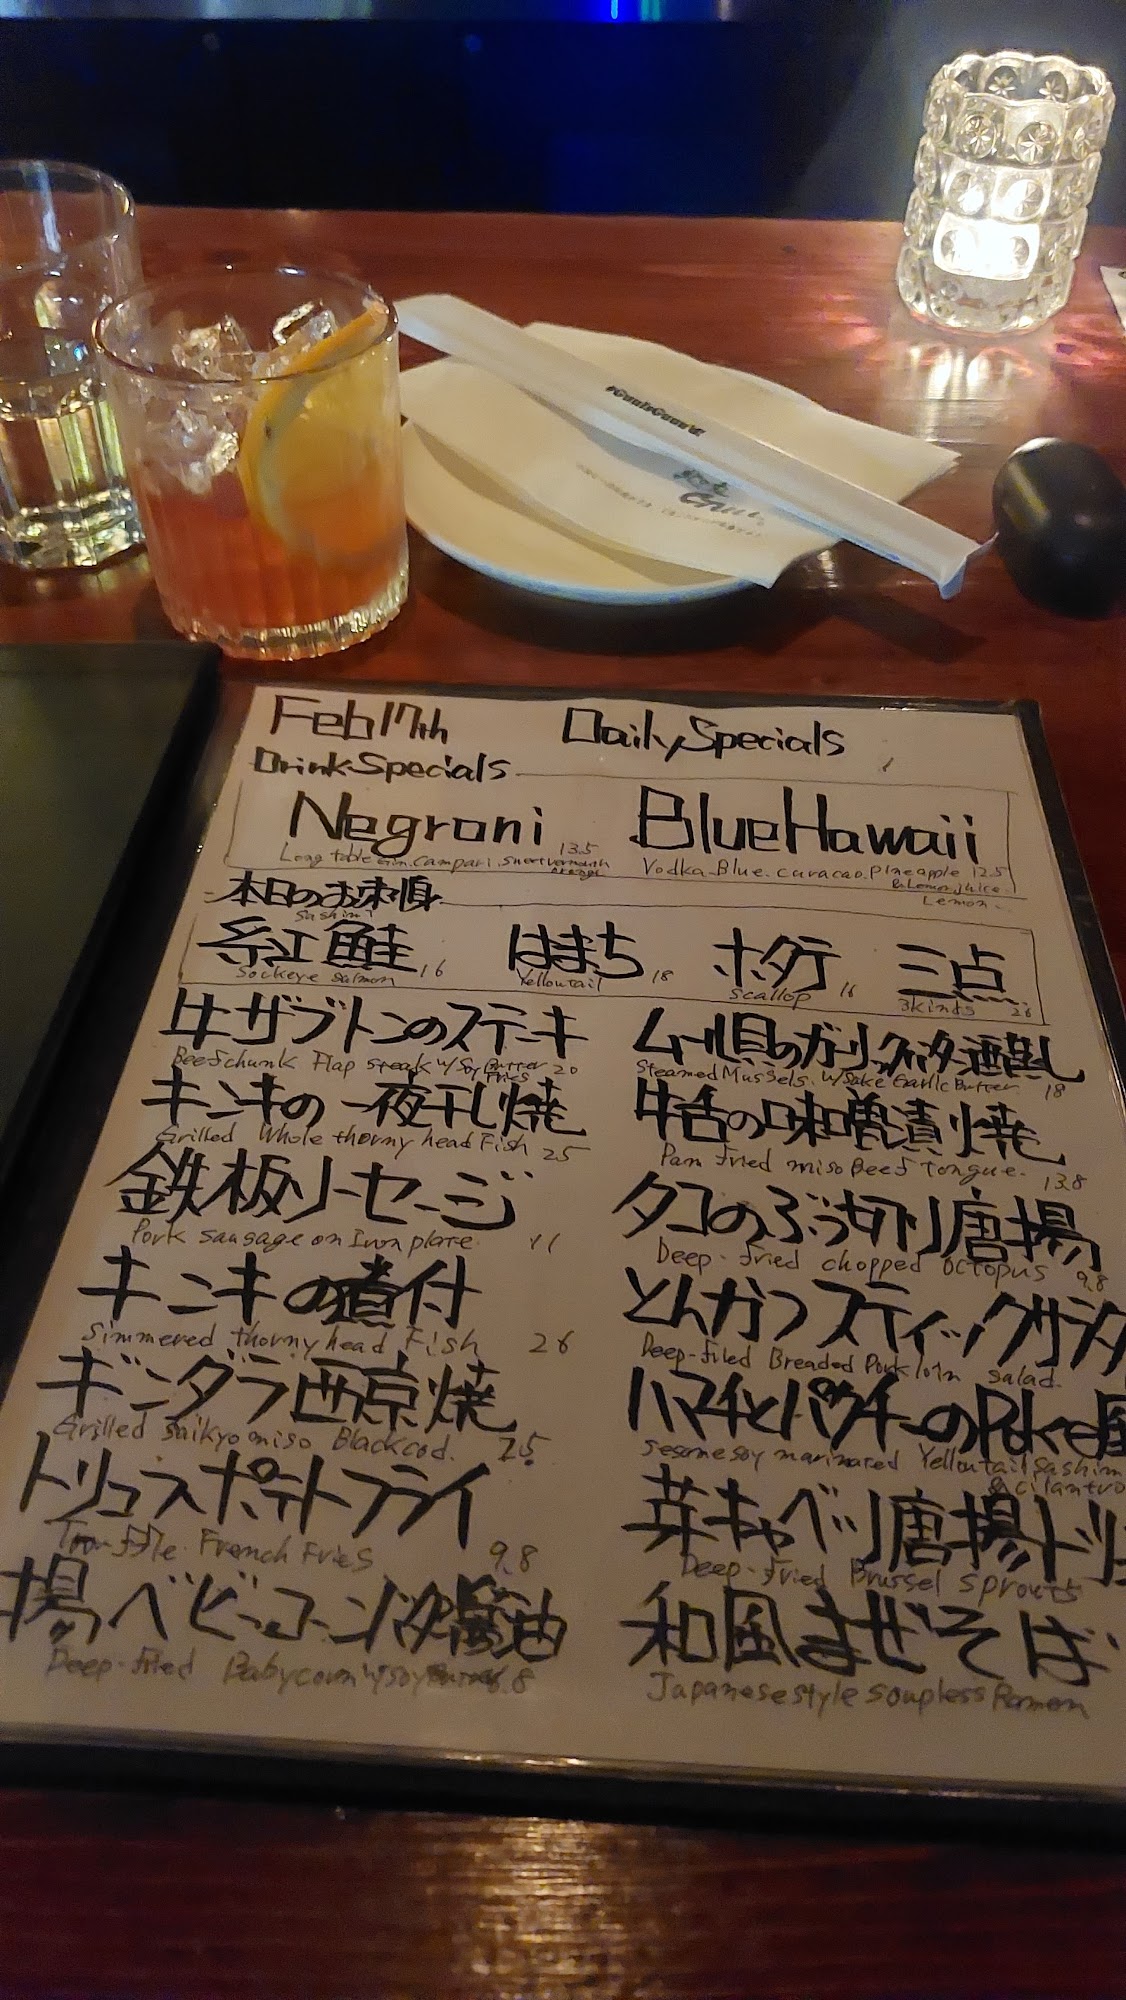 #GuuIsGuud!
Guu
Feb 17th Daily Specials
Drink Specials
Negroni
Long table Gin. Campari. Sweet vermouth 13.5
Orange
Blue Hawaii
Vodka. Blue. curacao. Pineapple 12.5
& Lemon juice.
Lemon
本日のお刺身
Sashimi
紅鮭
Sockeye salmon 16
はまち
Yellowtail 18
ホタテ
Scallop 16
三点
3kinds 26
牛ザブトンのステーキ
Beef chunk Flap steak w/ Soy Butter 20
Fries
キンキの一夜干し焼
Grilled Whole thorny head Fish 25
鉄板ソーセージ
Pork sausage on Iron plate 11
キンキの煮付
Simmered thorny head Fish 26
ギンダラ西京焼
Grilled saikyo miso Black cod. 25
トリュフポテトフライ
Truffle French Fries 9.8
揚ベビーコーンバター醤油
Deep-fried Babycorn w/ soy 6.8
ムール貝のガーリックバター酒蒸し
Steamed Mussels. w/ Sake Garlic Butter 18
牛舌の味噌漬焼
Pan fried miso Beef Tongue. 13.8
タコのぶつ切り唐揚
Deep-fried chopped octopus 9.8
とんかつスティックサラダ
Deep-fried Breaded Pork loin salad.
ハマチとパクチーのPoke風
sesame soy marinated Yellowtail sashimi
& cilantro
芽キャベツ唐揚トリュ
Deep-fried Brussel sprouts
和風まぜそば
Japanese style soupless Ramen